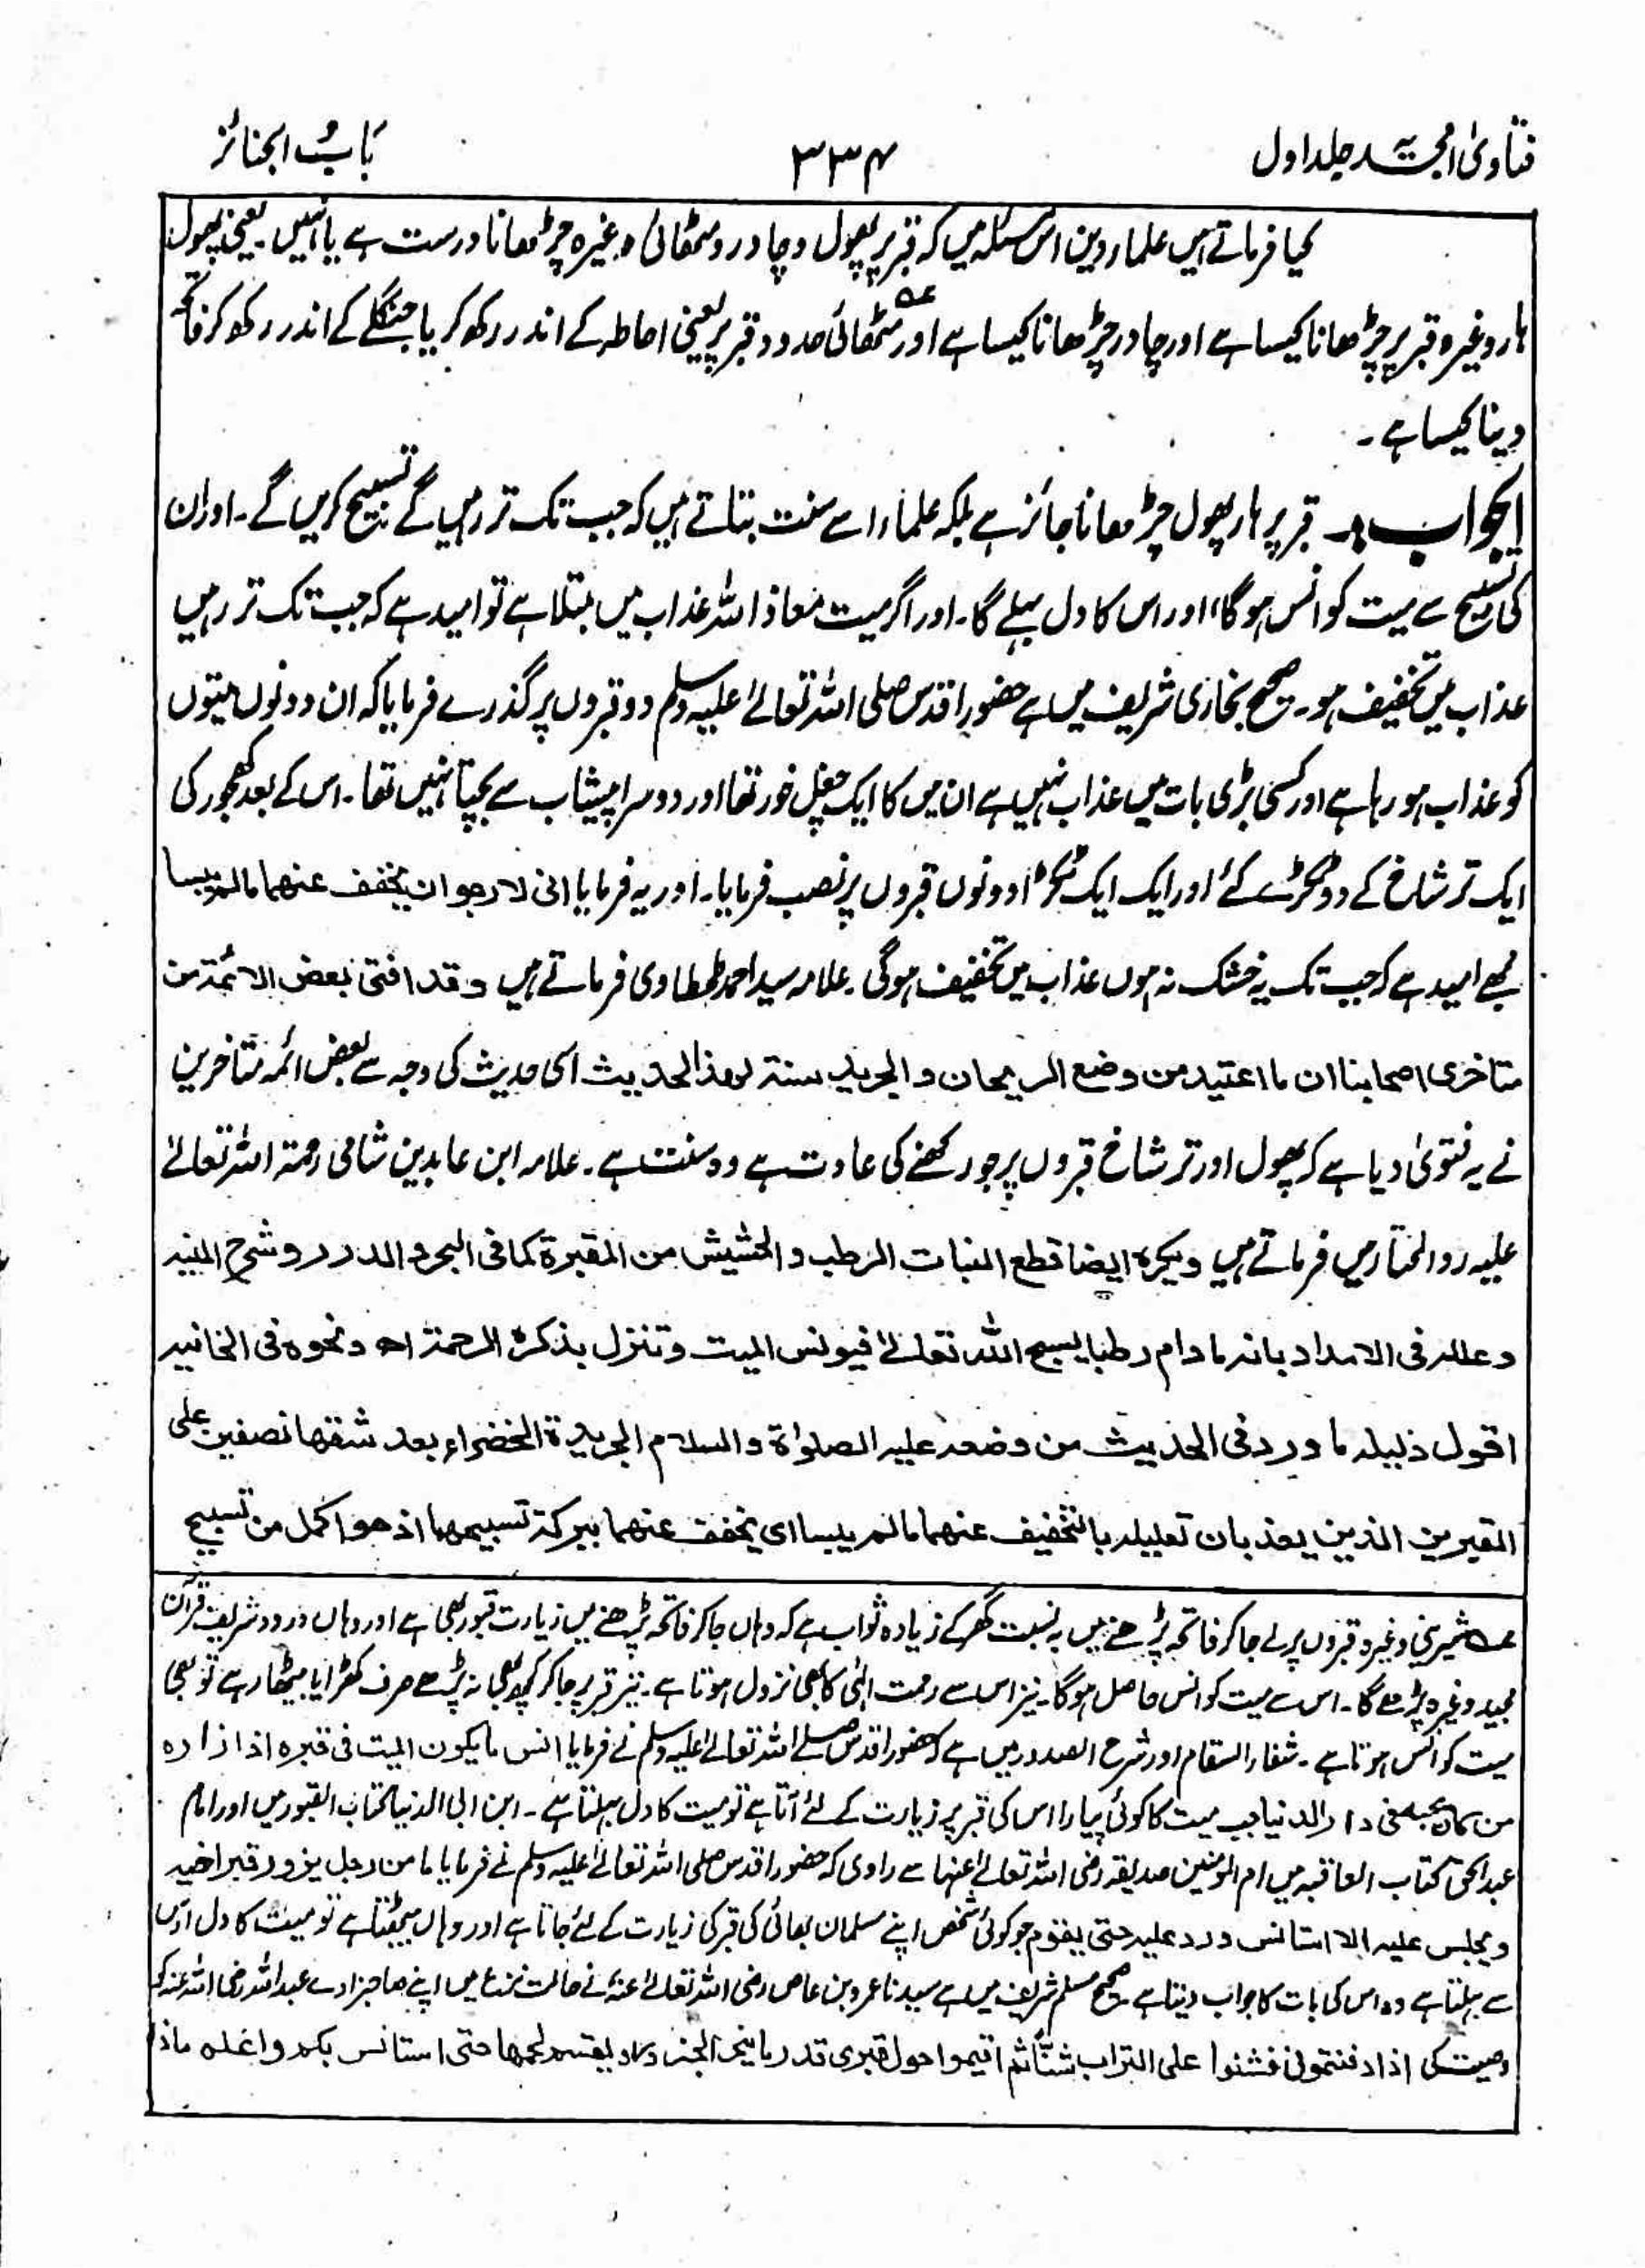 فتاویٰ امجدیہ جلد اول
۳۳۴
بَابُ الجنائز
کیا فرماتے ہیں علماء دین اس مسئلہ میں کہ قبر پر پھول و چادر و مٹھائی وغیرہ چڑھانا درست ہے یا نہیں۔ یعنی پھول
ہار وغیرہ قبر پر چڑھانا کیسا ہے اور چادر چڑھانا کیسا ہے اور مٹھائی عہ حدود قبر پر یعنی احاطہ کے اندر رکھ کر یا جنگلے کے اندر رکھ کر فاتحہ
دینا کیسا ہے۔
الجواب:۔ قبر پر ہار پھول چڑھانا جائز ہے بلکہ علماء اسے سنت بتاتے ہیں کہ جب تک تر رہیں گے تسبیح کریں گے۔ اور ان
کی تسبیح سے میت کو انس ہوگا، اور اس کا دل بہلے گا۔ اور اگر میت معاذ اللہ عذاب میں مبتلا ہے تو امید ہے کہ جب تک تر رہیں
عذاب میں تخفیف ہو۔ صحیح بخاری شریف میں ہے حضور اقدس صلی اللہ تعالےٰ علیہ وسلم دو قبروں پر گذرے فرمایا کہ ان دونوں میتوں
کو عذاب ہو رہا ہے اور کسی بڑی بات میں عذاب نہیں ہے ان میں کا ایک چغل خور تھا اور دوسرا پیشاب سے بچتا نہیں تھا۔ اس کے بعد کھجور کی
ایک تر شاخ کے دو ٹکڑے کئے اور ایک ایک ٹکڑا دونوں قبروں پر نصب فرمایا۔ اور یہ فرمایا انی لارجوان یخفف عنھما مالم ییبسا
مجھے امید ہے کہ جب تک یہ خشک نہ ہوں عذاب میں تخفیف ہوگی۔ علامہ سید احمد طحطاوی فرماتے ہیں وقد افتی بعض الائمۃ من
متاخری اصحابنا ان ما اعتید من وضع الریحان والجرید سنۃ لھذا الحدیث اسی حدیث کی وجہ سے بعض ائمہ متاخرین
نے یہ فتویٰ دیا ہے کہ پھول اور تر شاخ قبروں پر جو رکھنے کی عادت ہے وہ سنت ہے۔ علامہ ابن عابدین شامی رحمۃ اللہ تعالےٰ
علیہ رد المحتار میں فرماتے ہیں ویکرہ ایضا قطع النبات الرطب والحشیش من المقبرۃ کما فی البحر والدرر وشرح المنیہ
وعللہ فی الامداد بانہ ما دام رطبا یسبح اللہ تعالےٰ فیونس المیت وتنزل بذکرہ الرحمۃ اھ ونحوہ فی الخانیہ
اقول دلیلہ ما ورد فی الحدیث من وضعہ علیہ الصلوٰۃ والسلام الجریدۃ الخضراء بعد شقھا نصفین علی
القبرین الذین یعذبان تعلیلہ بالتخفیف عنھما مالم ییبسا ای یخفف عنھما ببرکۃ تسبیحھما اذ ھو اکمل من تسبیح
عہ شیرینی وغیرہ قبروں پر لے جا کر فاتحہ پڑھنے میں بہ نسبت گھر کے زیادہ ثواب ہے کہ وہاں جا کر فاتحہ پڑھنے میں زیارت قبور بھی ہے اور وہاں درود شریف قرآن
مجید وغیرہ پڑھے گا۔ اس سے میت کو انس حاصل ہوگا۔ نیز اس سے رحمت الٰہی کا بھی نزول ہوتا ہے۔ نیز قبر پر جا کر کچھ بھی نہ پڑھے صرف کھڑا یا بیٹھا رہے تو بھی
میت کو انس ہوتا ہے۔ شفاء السقام اور شرح الصدور میں ہے کہ حضور اقدس صلے اللہ تعالےٰ علیہ وسلم نے فرمایا انس مایکون المیت فی قبرہ اذا زارہ
من کان یحبہ فی دار الدنیا جب میت کا کوئی پیارا اس کی قبر پر زیارت کے لئے آتا ہے تو میت کا دل بہلتا ہے۔ ابن ابی الدنیا کتاب القبور میں اور امام
عبدالحق کتاب العاقبہ میں ام المومنین صدیقہ رضی اللہ تعالےٰ عنہا سے راوی کہ حضور اقدس صلی اللہ تعالےٰ علیہ وسلم نے فرمایا ما من رجل یزور قبر اخیہ
ویجلس علیہ الا استانس ورد علیہ حتی یقوم جو کوئی شخص اپنے مسلمان بھائی کی قبر کی زیارت کے لئے جاتا ہے اور وہاں بیٹھتا ہے تو میت کا دل اس
سے بہلتا ہے وہ اس کی بات کا جواب دیتا ہے صحیح مسلم شریف میں ہے سیدنا عمرو بن عاص رضی اللہ تعالےٰ عنہ نے حالت نزع میں اپنے صاحبزادے عبداللہ رضی اللہ عنہ کو
وصیت کی اذا دفنتمونی فشنوا علی التراب شنّا ثم اقیموا حول قبری قدر ما ینحر الجزور ویقسم لحمھا حتی استانس بکم واعلم ماذا